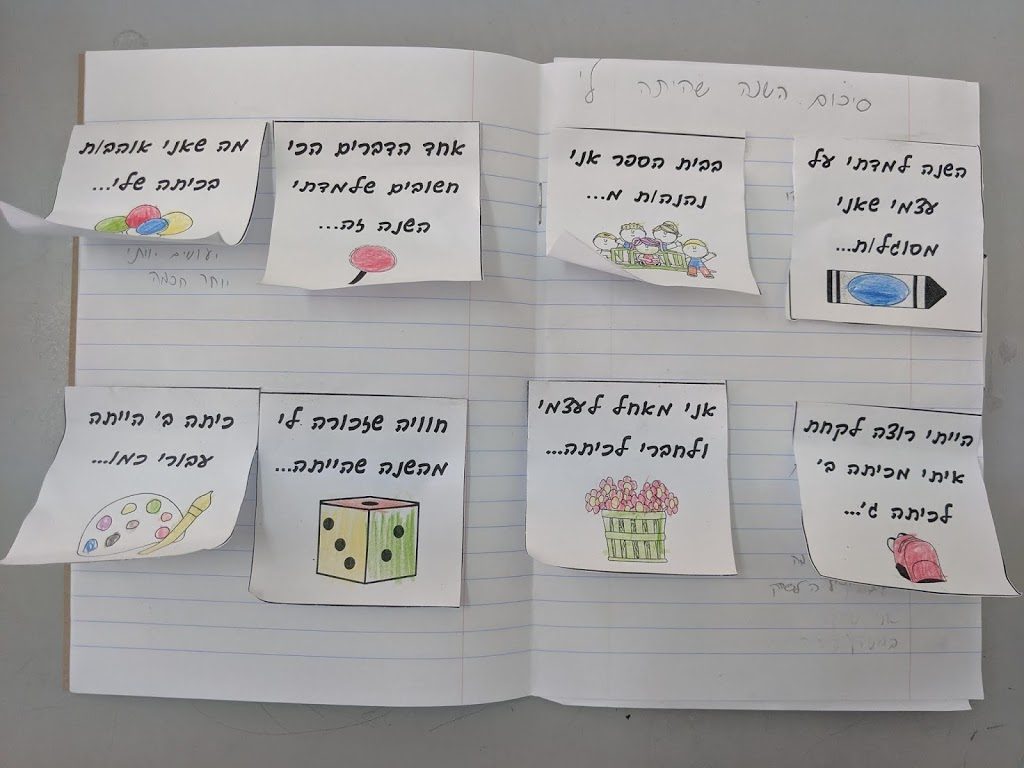 סיכום השנה שהיתה לי
השנה למדתי על
עצמי שאני
מסוגל/ת...
בבית הספר אני
נהנה/ת מ...
אחד הדברים הכי
חשובים שלמדתי
השנה זה...
מה שאני אוהב/ת
בכיתה שלי...
יותר חכמה
הייתי רוצה לקחת
איתי מכיתה ב'
לכיתה ג'...
אני מאחל לעצמי
ולחברי לכיתה...
חוויה שזכורה לי
מהשנה שהייתה...
כיתה ב' הייתה
עבורי כמו...